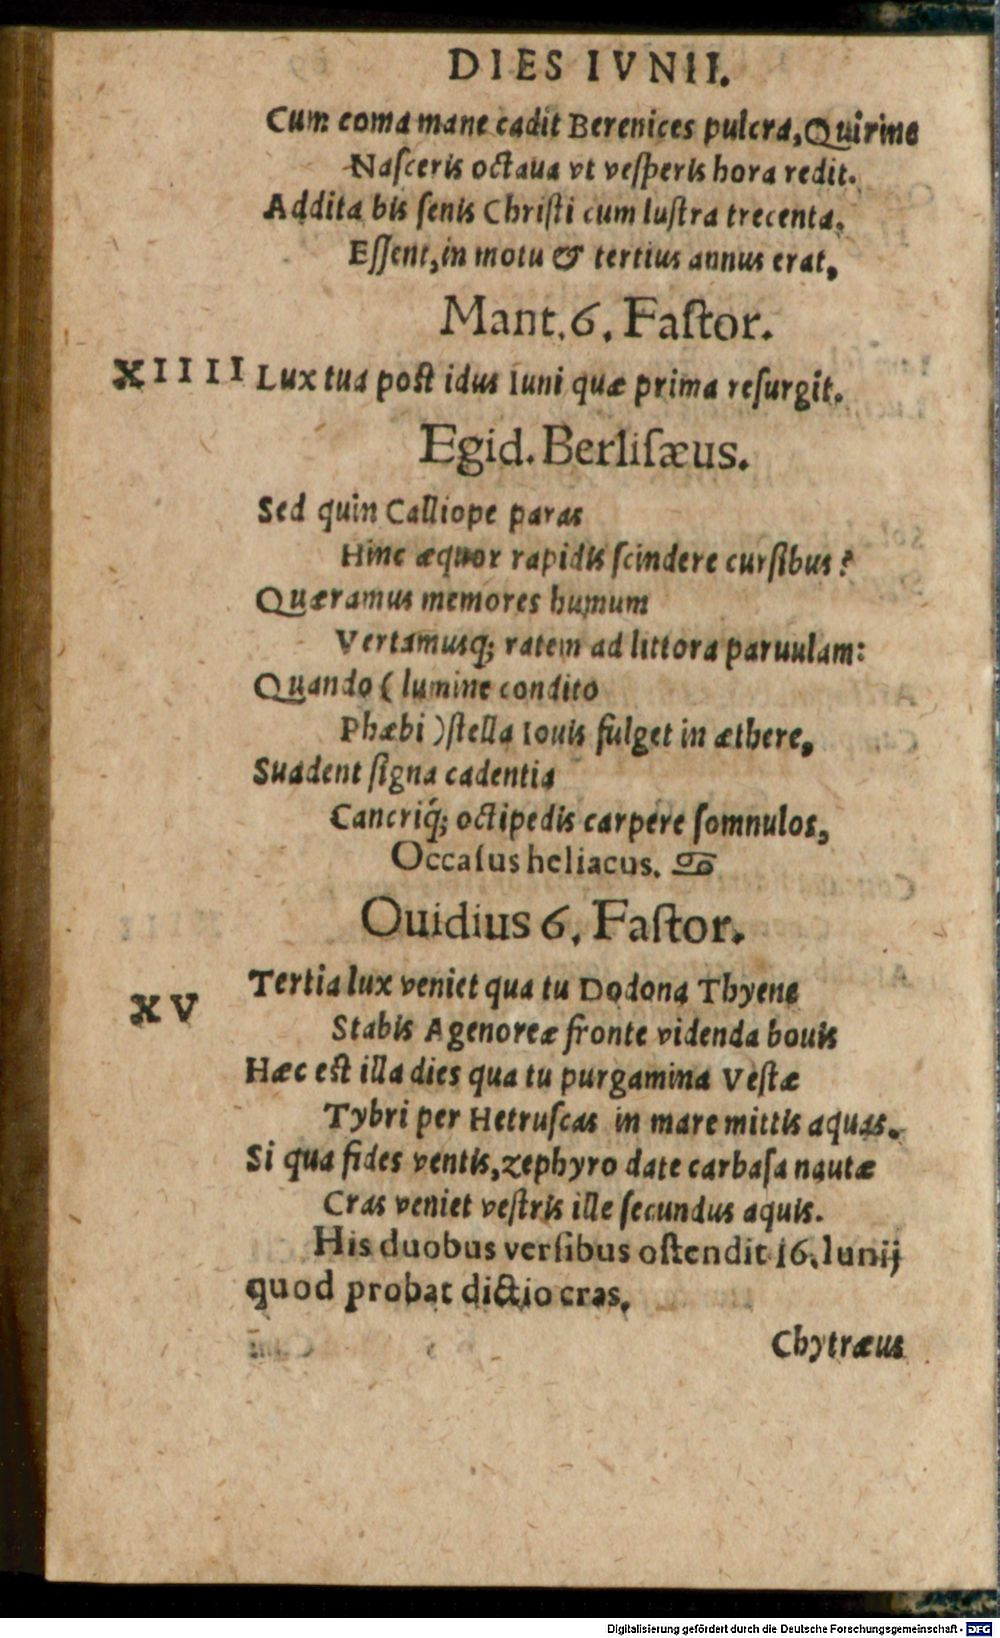 DIES IVNII.
Cum coma mane cadit Berenices pulcra, Quirine
Naſceris octaua vt veſperis hora redit.
Addita bis ſenis Chriſti cum luſtra trecenta,
Eſſent, in motu & tertius annus erat,
Mant. 6. Faſtor.
XIIII Lux tua poſt idus Iuni quæ prima reſurgit.
Egid. Berliſæus.
Sed quin Calliope paras
Hinc æquor rapidis ſcindere curſibus?
Quæramus memores humum
Vertamusq; ratem ad littora paruulam:
Quando ( lumine condito
Phæbi ) ſtella Iouis fulget in æthere,
Suadent ſigna cadentia
Cancriq́; octipedis carpere ſomnulos,
Occaſus heliacus. ♋
Ouidius 6. Faſtor.
XV Tertia lux veniet qua tu Dodona Thyene
Stabis Agenoreæ fronte videnda bouis
Hæc eſt illa dies qua tu purgamina Veſtæ
Tybri per Hetruſcas in mare mittis aquas.
Si qua fides ventis, zephyro date carbaſa nautæ
Cras veniet veſtris ille ſecundus aquis.
His duobus verſibus oſtendit 16. Iunij
quod probat dictio cras.
Chytræus
Digitalisierung gefördert durch die Deutsche Forschungsgemeinschaft - DFG